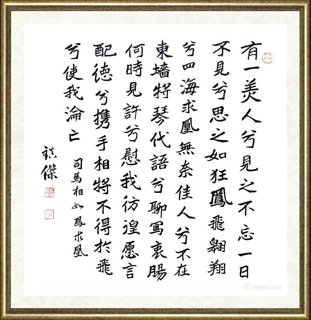 有一美人兮見之不忘一日
不見兮思之如狂鳳飛翱翔
兮四海求凰無奈佳人兮不在
東墙將琴代語兮聊寫衷腸
何時見許兮慰我彷徨愿言
配德兮携手相將不得於飛
兮使我淪亡
司馬相如鳳求凰
傑